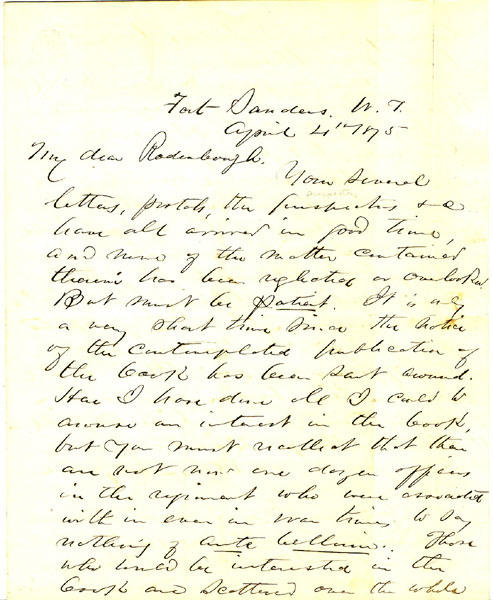 Fort Sanders, W. T.
April 21st 1875
My dear Rodenbough.
Your several
letters, postals, the prospectus &c
have all arrived in good time,
and none of the matter contained
therein has been neglected or overlooked
But must be patient. It is only
a very short time since the notice
of the contemplated publication of
the book has been sent around.
Here I have done all I could to
arouse an interest in the book,
but you must recollect that there
are not now one dozen officers
in the regiment who were associated
with in even in war times to say
nothing of ante bellum. Those
who would be interested in the
book are scattered over the whole